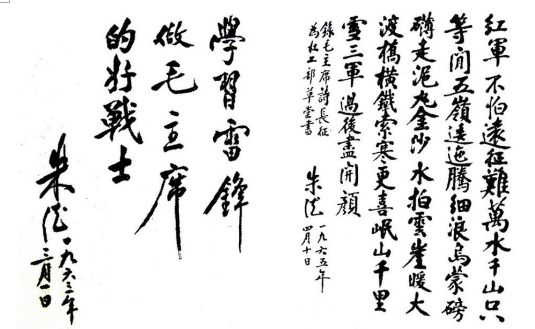 紅軍不怕遠征難萬水千山只
等閒五嶺逶迤騰細浪烏蒙磅
礴走泥丸金沙水拍雲崖暖大
渡橋橫鐵索寒更喜岷山千里
雪三軍過後盡開顏
錄毛主席詩長征
為杜工部草堂書
朱德 一九六五年
四月十日
學習雷鋒
做毛主席
的好戰士
朱德 一九六三年
三月一日